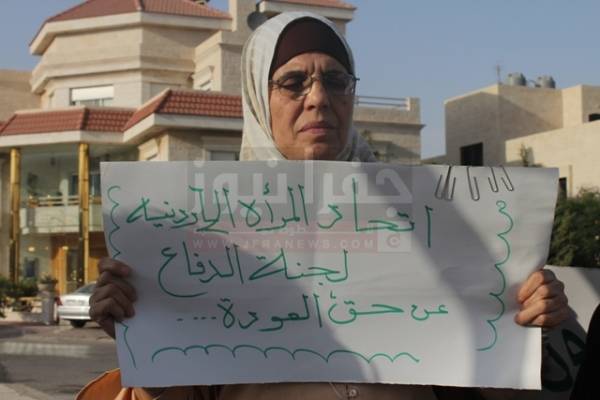 اتحاد المرأة الأردنية
لجنة الدفاع
عن حق العودة....
جفرا نيوز
WWW.JFRANEWS.COM